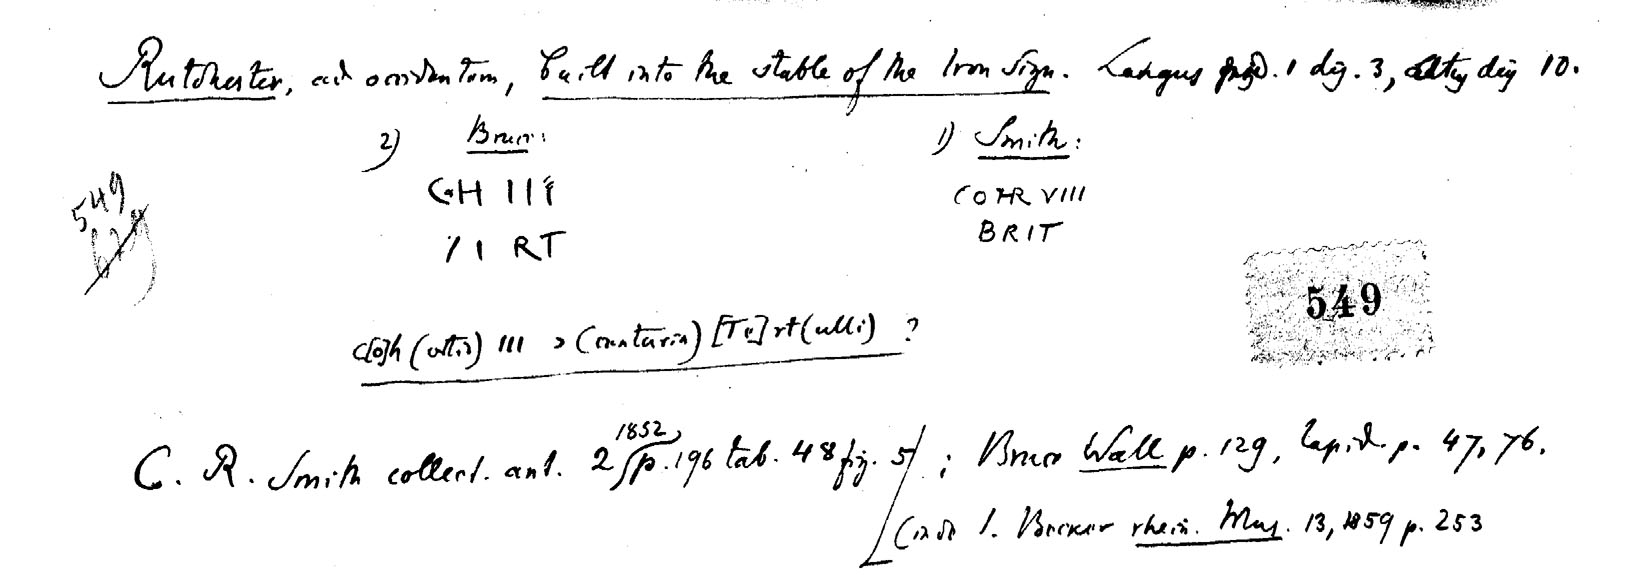 Rutchester, ad occidentem, built into the stable of the Iron Sign. Longus ped. 1 dig. 3, altus dig 10.
2) Bruce: 1) Smith:
COH III COHR VIII
/ I RT BRIT
549
629
549
c[o]h (ortis) III > (centuria) [Te]rt(ulli) ?
C. R. Smith collect. ant. 2, 1852, p. 196 tab. 48 fig. 5 ; Bruce Wall p. 129, lapid. p. 47, 76.
(inde J. Becker rhein. Mus. 13, 1859 p. 253